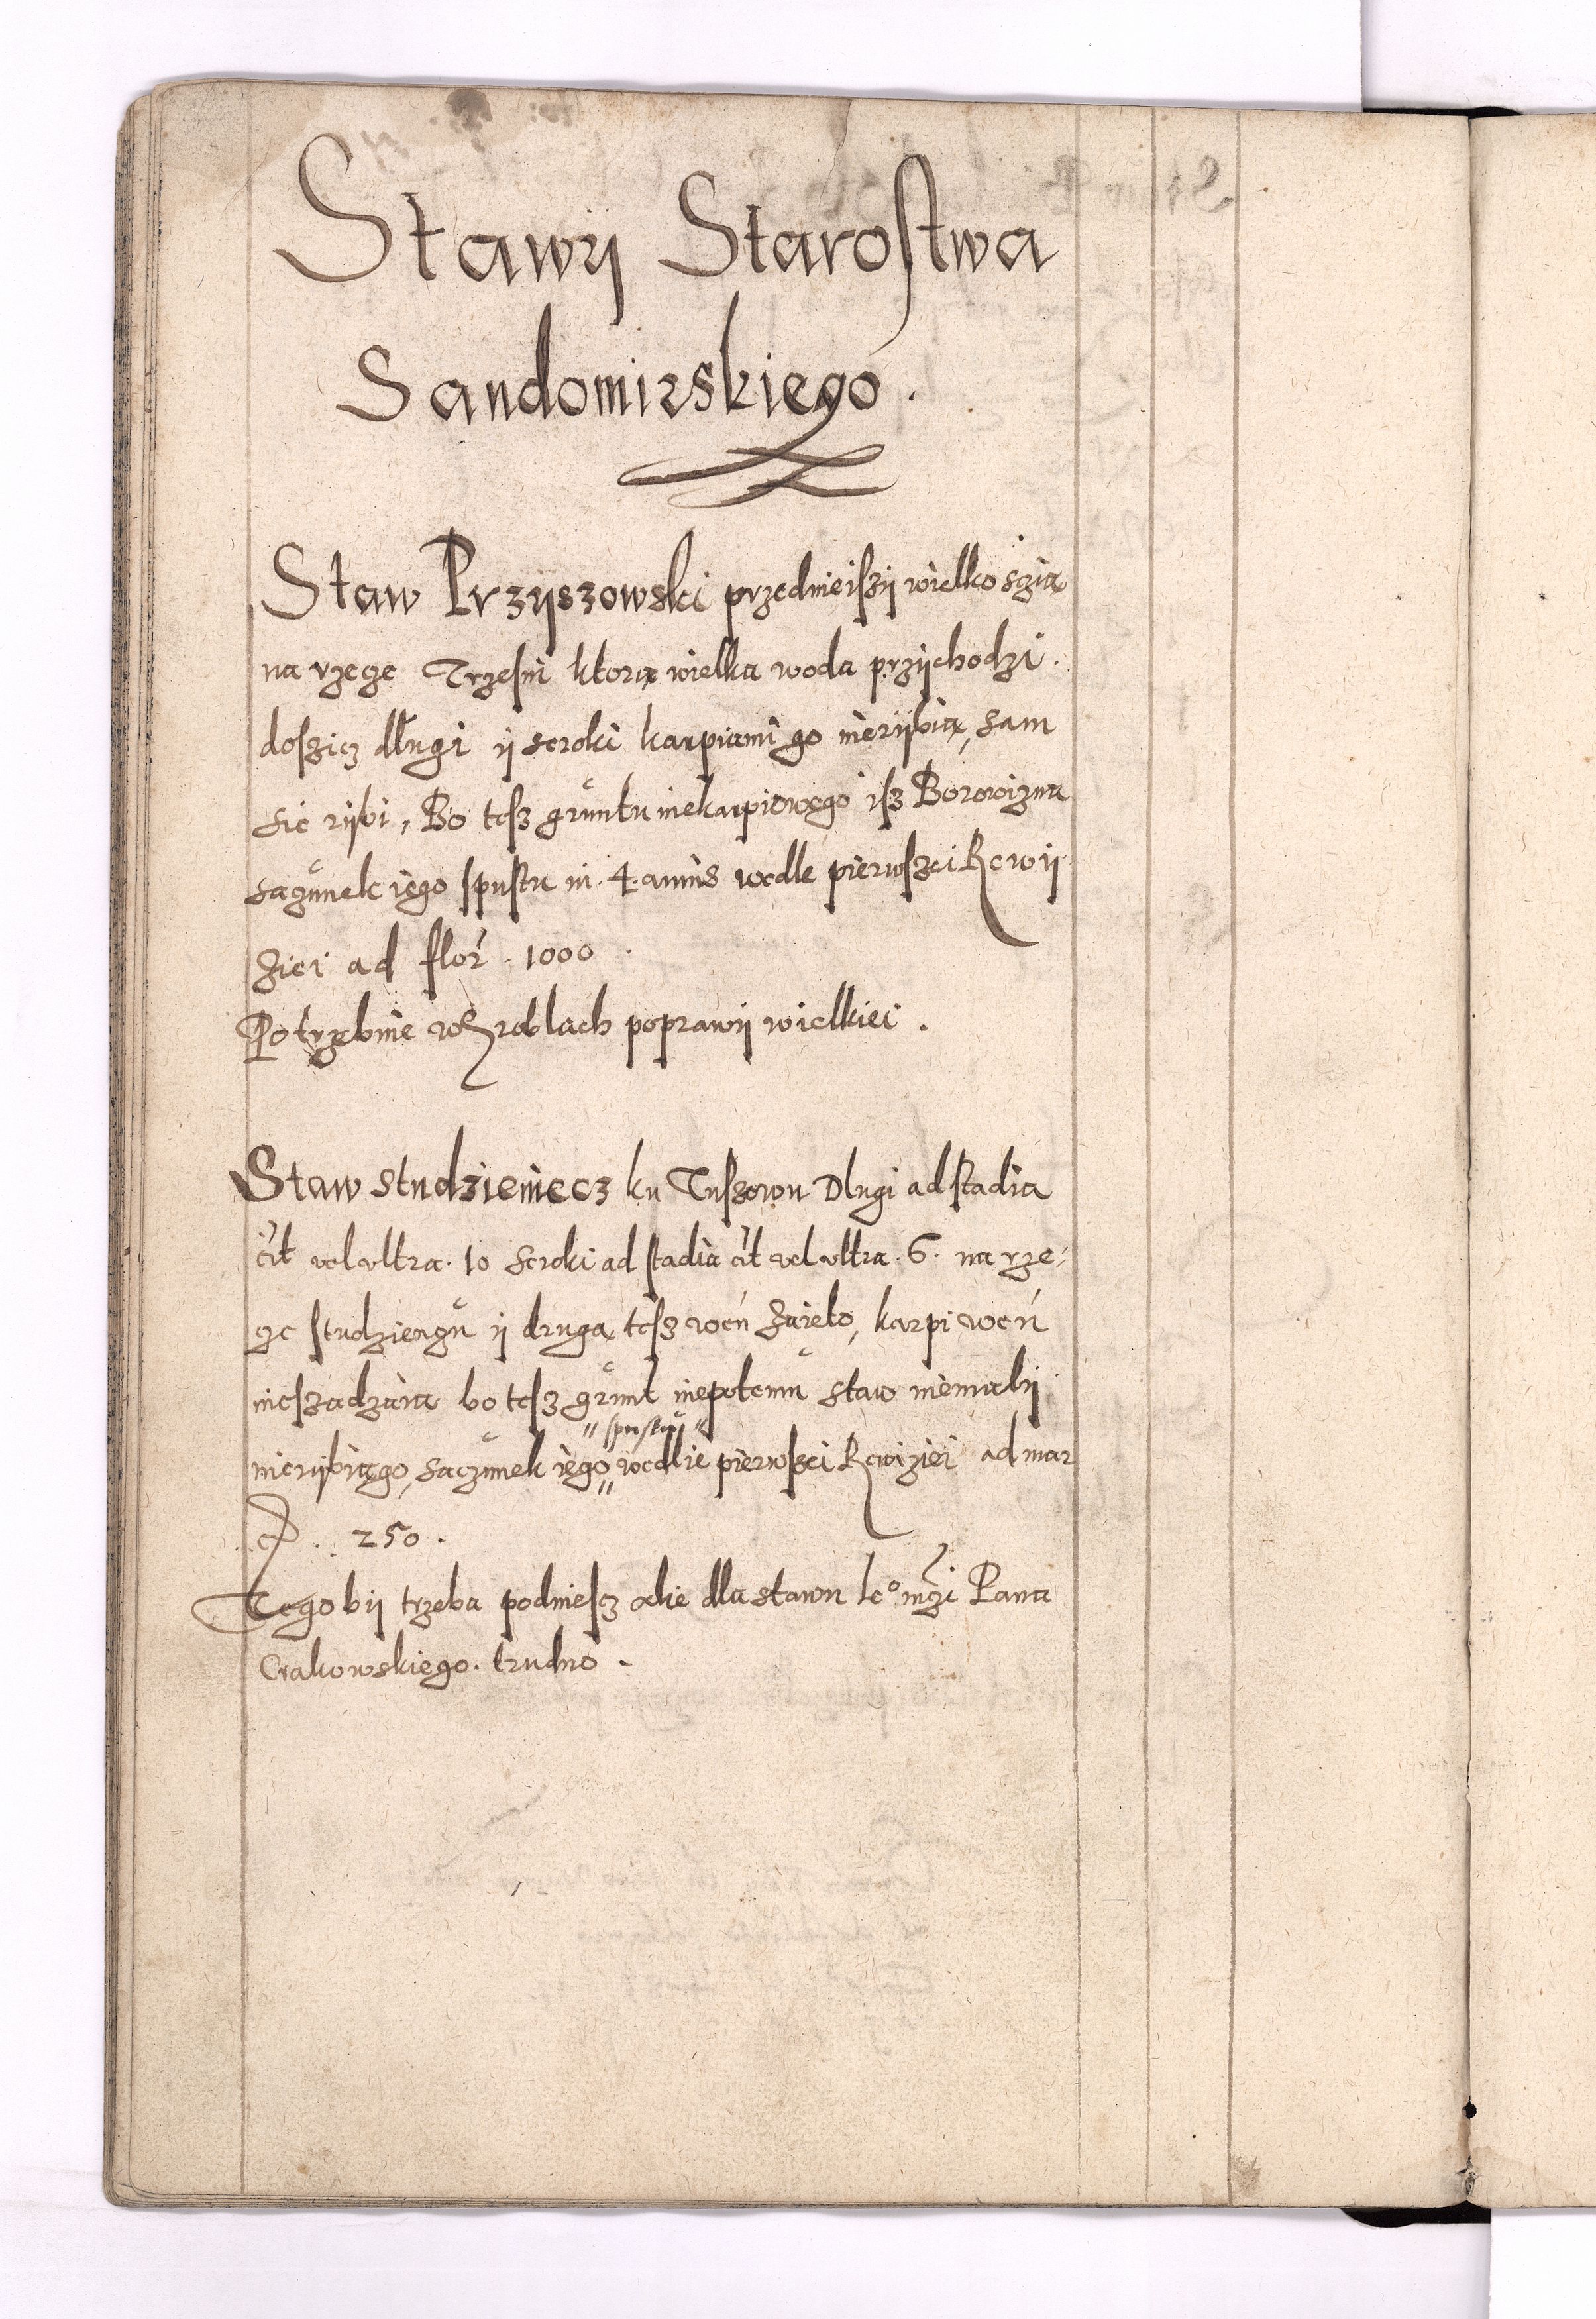 Stawÿ Starostwa
Sandomirskiego.
Staw Przÿszowski przednieiszÿ wielkosczią
na rzece Trzesni ktorą wielka woda przÿchodzi.
doszicz długi ÿ scroki karpiami go nierÿbią, sam
sie rÿbi, Bo tesz gruntu niekarpiowego isz Borowizna
sacunek iego spustu in .4. annis wedle pierwszei Rewÿ
ziei ad flor. 1000.
Potrzebuie w Groblach poprawÿ wielkiei.
Staw Studzieniecz ku Tuszowu Dlugi ad stadia
cit vel vltra. 10 scroki ad stadia cit vel vltra. 6. na rze
ce studziencu ÿ druga tesz weń , karpi weń
nieszadzaia bo tesz grunt niepotemu staw niemalÿ
nierÿbiago, saczunek iego " spustu " wedlie pierwszei Rewiziei ad mar
. 250.
Tego bÿ trzeba podniescz dla stawu Ie° mczi Pana
Crakowskiego. trudno.